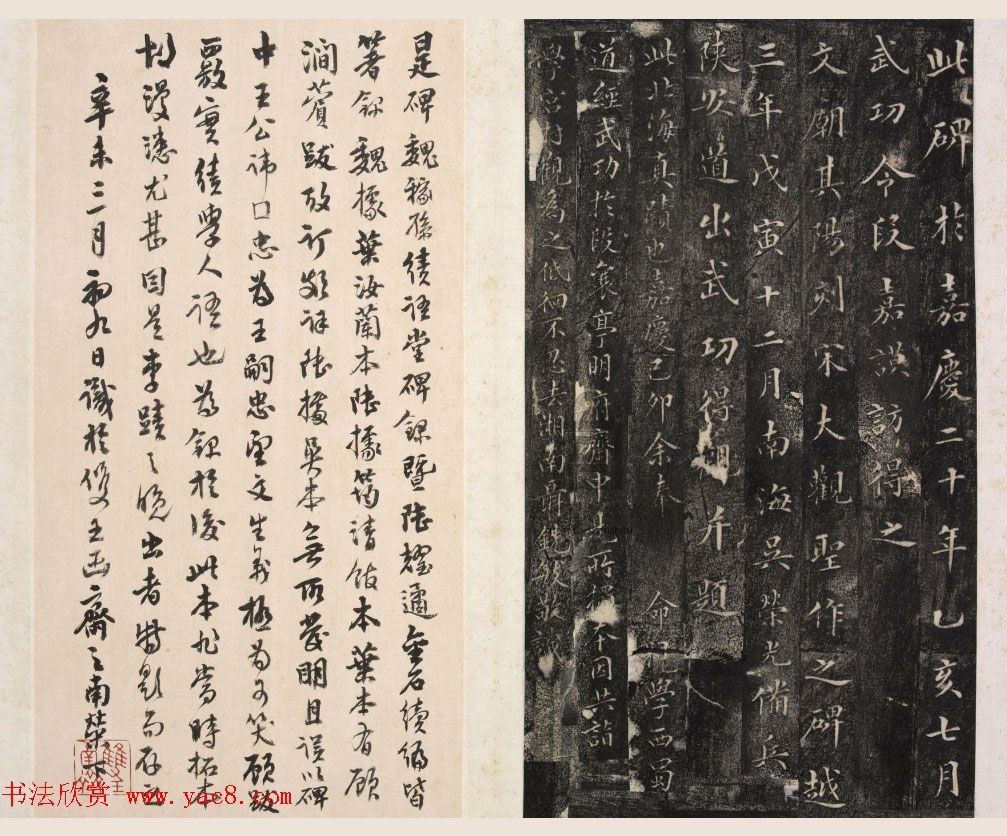 此碑於嘉慶二十年乙亥七月
武功令段嘉謨訪得之
文廟其陽刻宋大觀聖作之碑越
三年戊寅十二月南海吳榮光備兵
陝安道出武功得觀并題
此北海真蹟也嘉慶己卯余奉 命 學西蜀
道經武功於段襄亭明府齋中見所 本因共詣
學宮 觀為之低徊不忍去湘南聶銑敏敬識
是碑魏稼孫績語堂碑錄暨陸耀遹金石續編皆
著錄魏據葉汝蘭本陸據筠清館本葉本有顧
澗薲跋攷訂頗詳陸據吳本無所發明且誤以碑
中王公諱口忠為王嗣忠望文生義極為可笑顧跋
覈實績學人語也為錄於後此本非當時拓本
漫漶尤甚因是李蹟之晚出者特影而存之
辛未三月初九日識於雙玉函齋之南榮下
書法欣賞 www.yac8.com